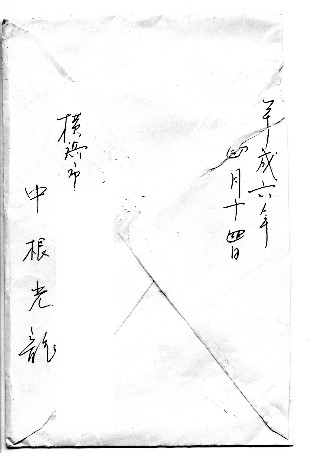 平成六年
四月十四日
横浜市
中根光龍